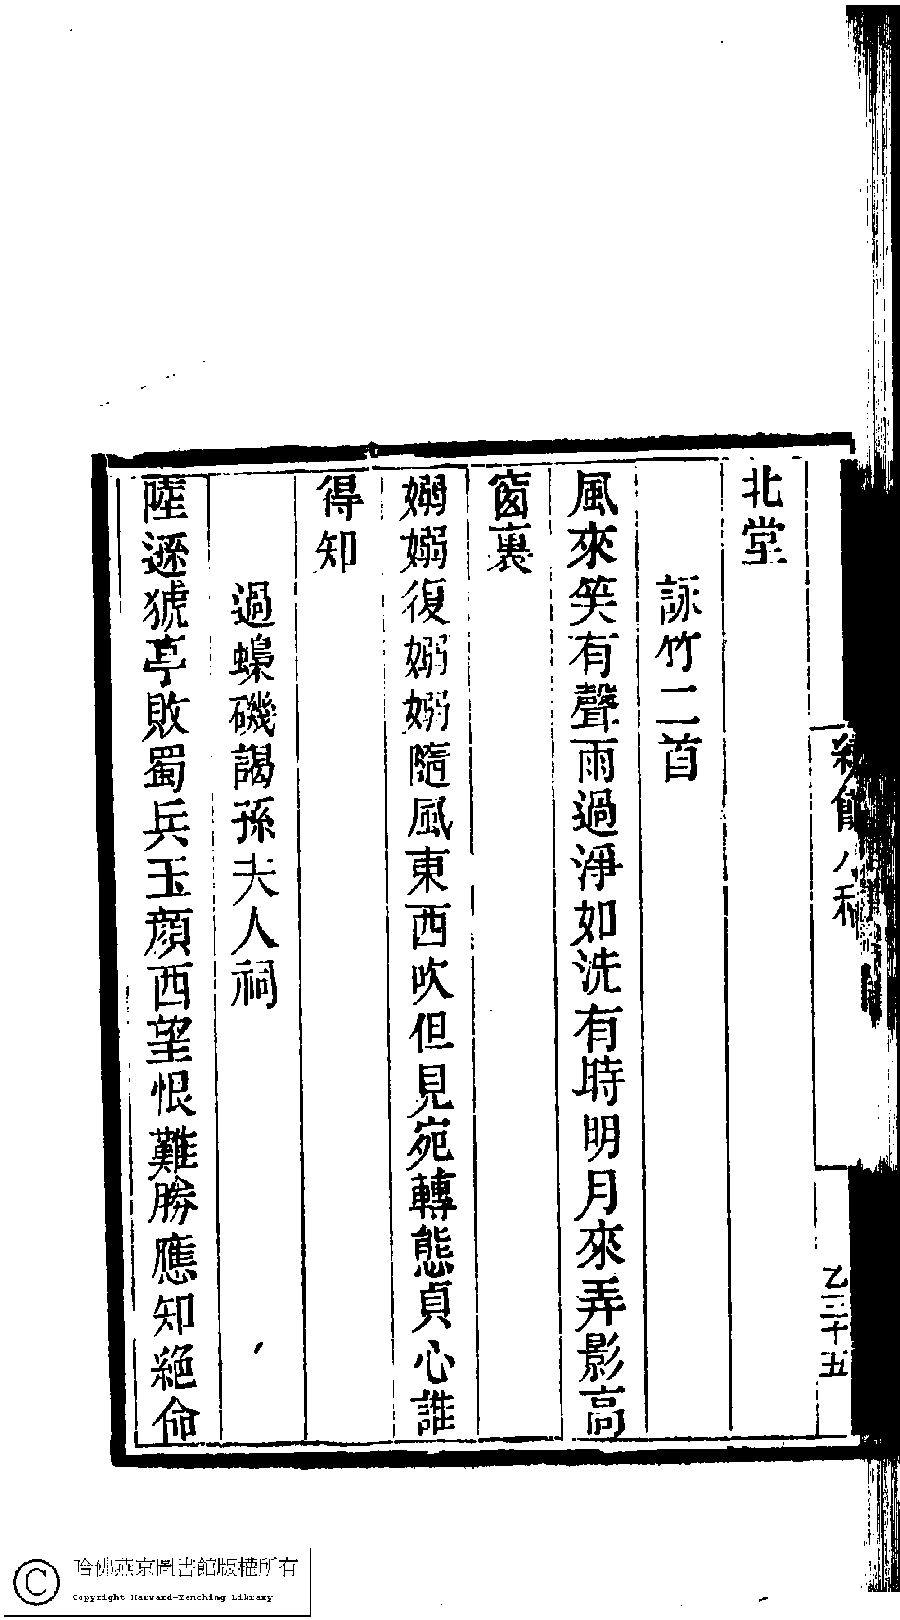 北堂
詠竹二首
風來笑有聲雨過淨如洗有時明月來弄影高
窗裏
嫋嫋復嫋嫋隨風東西吹但見宛轉態貞心誰
得知
過蟂磯謁孫夫人祠
陸遜猇亭敗蜀兵玉顏西望恨難勝應知絕命
乙三十五
哈佛燕京圖書館版權所有
Copyright Harvard-Yenching Library